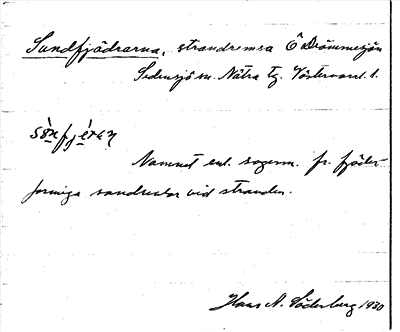 Sandfjädrarna, strandremsa Ö Drömmesjön
Sidensjö sn. Nätra tg. Västernorrl. l.
Namnet enl. sagesm. fr. fjäder-
formiga sandrevlar vid stranden.
Hans A. Söderberg 1930